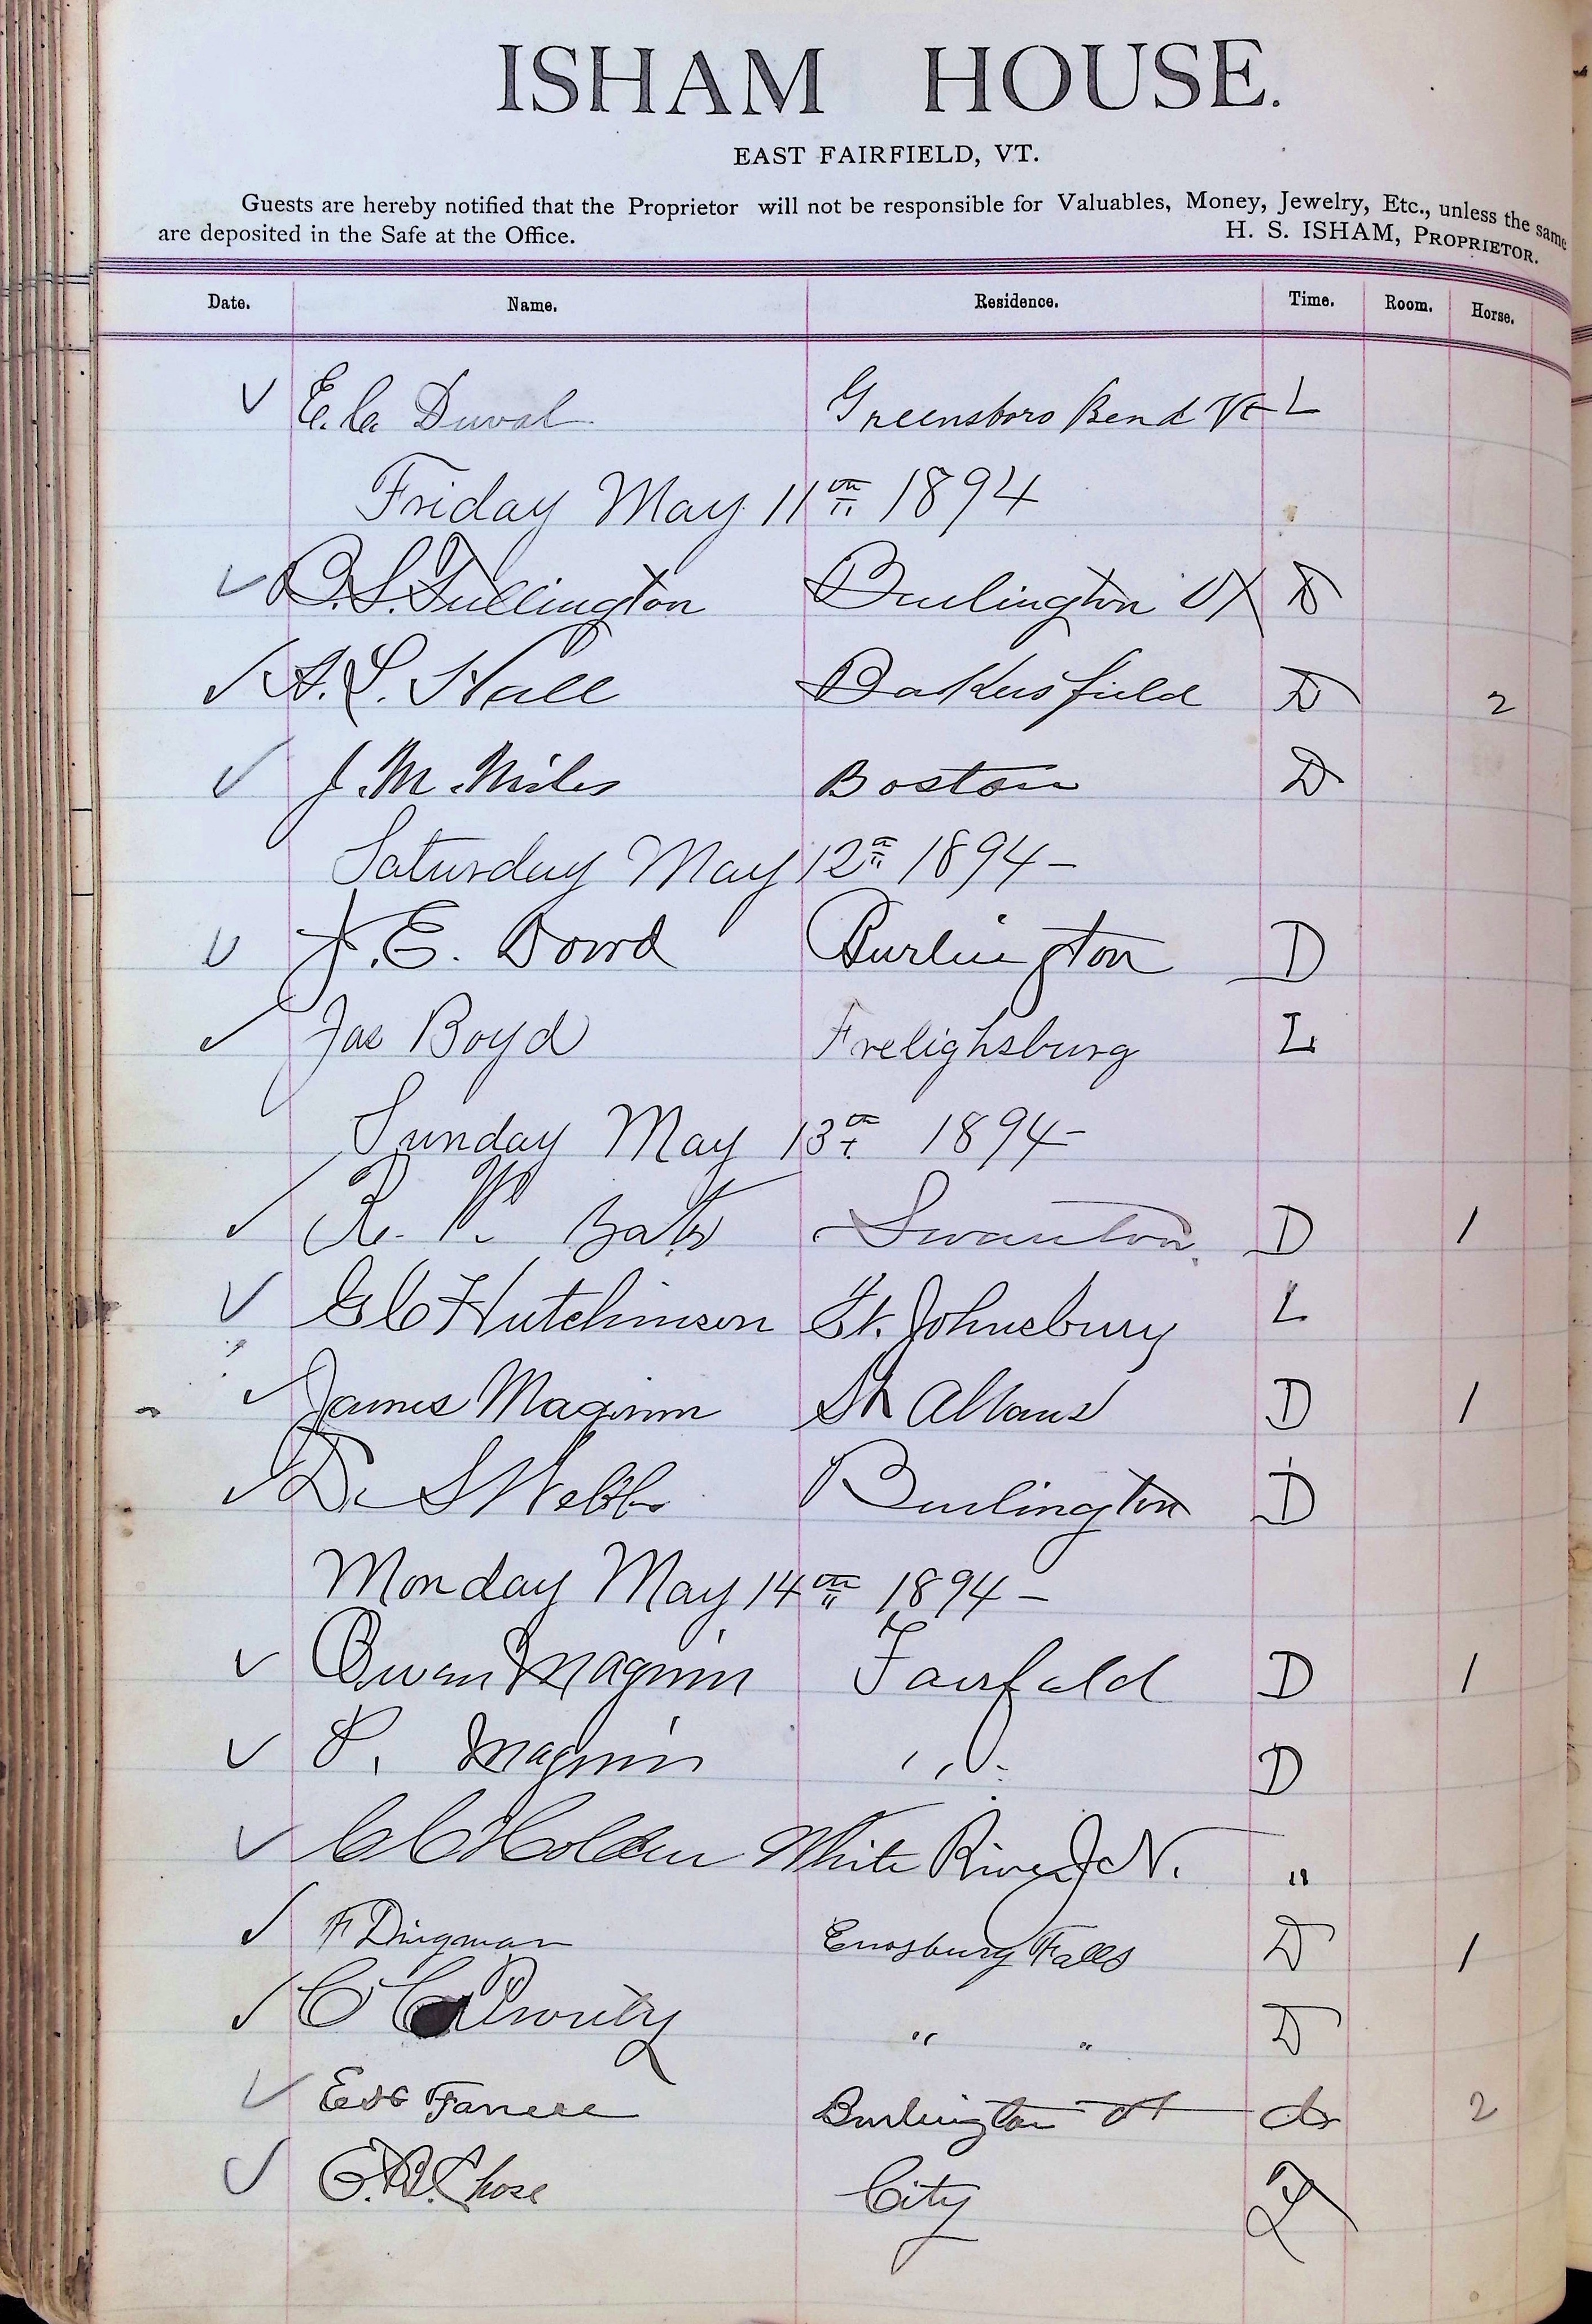 ISHAM HOUSE.
EAST FAIRFIELD, VT.
Guests are hereby notified that the Proprietor will not be responsible for Valuables, Money, Jewelry, Etc., unless the same
are deposited in the Safe at the Office. H. S. ISHAM, PROPRIETOR.
Date. Name. Residence. Time. Room. Horse.
✓ E. C. Duval Greensboro Bend Vt L
Friday May 11th 1894
✓ B. S. Fullington Burlington Vt D
✓ A. L. Hall Bakersfield D 2
✓ J. M. Miles Boston D
Saturday May 12th 1894-
✓ J. E. Dowd Burlington D
✓ Jas Boyd Frelighsburg L
Sunday May 13th 1894-
✓ Bates Swanton D 1
✓ G C Hutchinson St. Johnsbury L
✓ James Maginn St Albans D 1
✓ D. S Webb Burlington D
Monday May 14th 1894-
✓ Owen Maginn Fairfield D 1
✓ P. Maginn " " D
✓ C C Holden White River Jc N. "
✓ F Dingman Enosburg Falls D 1
✓ C C Prouty " " D
✓ Farrell Burlington Vt D 2
✓ E. B. Chase City